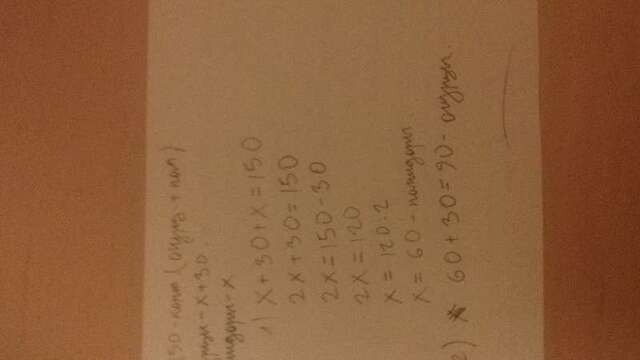 150-конт (огурц + пом)
огурцы - x+30.
помидоры - x
1) x+30+x=150
2x+30=150
2x=150-30
2x=120
x=120:2
x=60-помидоры.
2) 60+30=90-огурцы